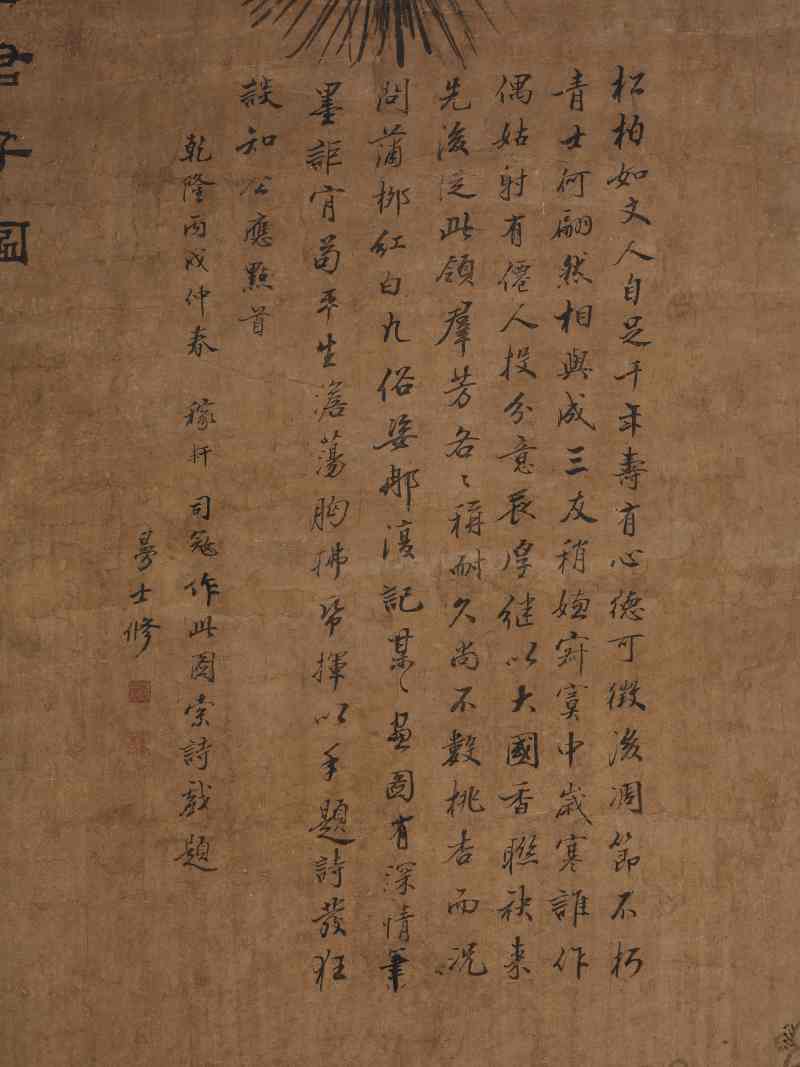 松柏如文人自足千年壽有心德可徵後凋節不朽
青士何翩然相與成三友稍嫌寂寞中歲寒誰作
偶姑射有僊人投分意良厚継以大國香聯袂来
先後從此領羣芳各〻稱耐久尚不數桃杏而况
問蒲柳紅白九俗姿那復記某〻畫圖有深情筆
墨詎肯苟平生澹蕩胸拂帋揮以手題詩發狂
談知公應點首
乾隆丙戌仲春 稼軒司冠作此圖索詩戲題
士修
君子圖